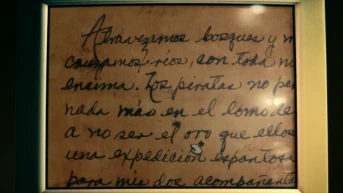 Atravezamos bosques y m
cruzamos rios, con toda nu
ensima. Los piratas no pen
nada más en el lomo de
a no ser el oro que ellos
una expedición espantosa
para mis dos acompañante